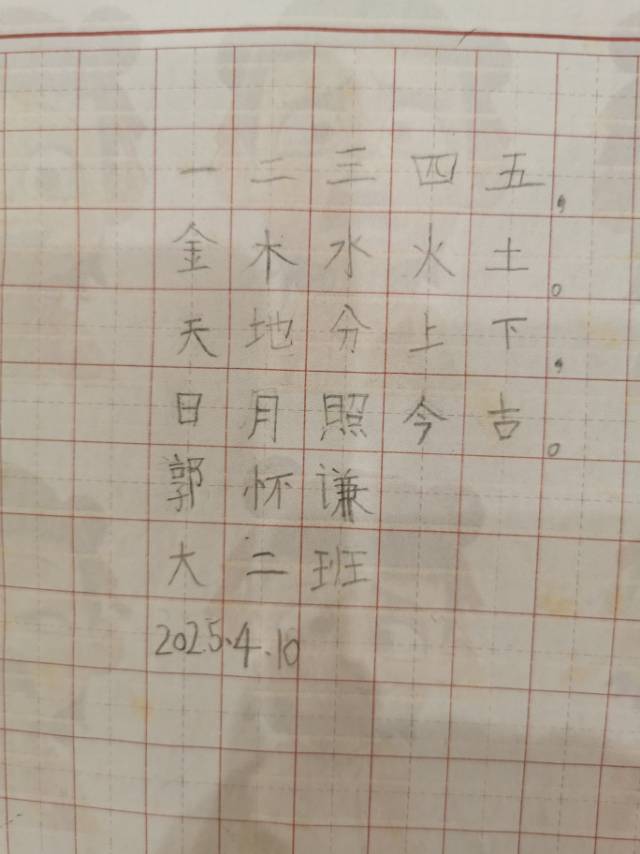 一二三四五，
金木水火土。
天地分上下，
日月照今古。
郭怀谦
大二班
2025.4.10